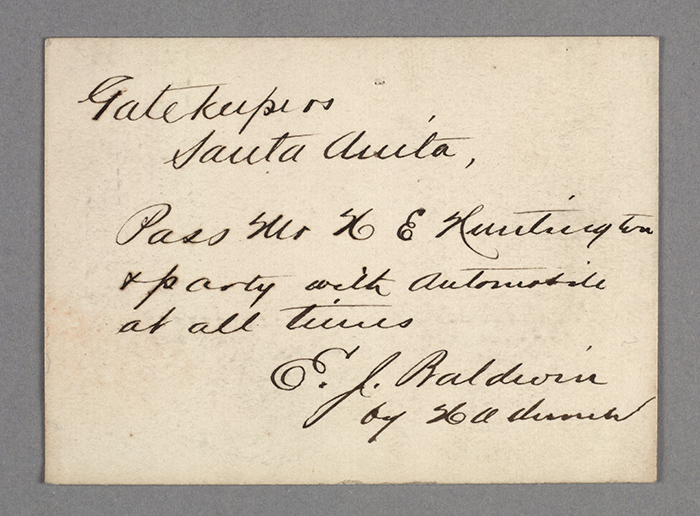 Gatekeepers
Santa Anita,
Pass Mr H E Huntington
& party with Automobile
at all times
E. J. Baldwin
by H A Unruh